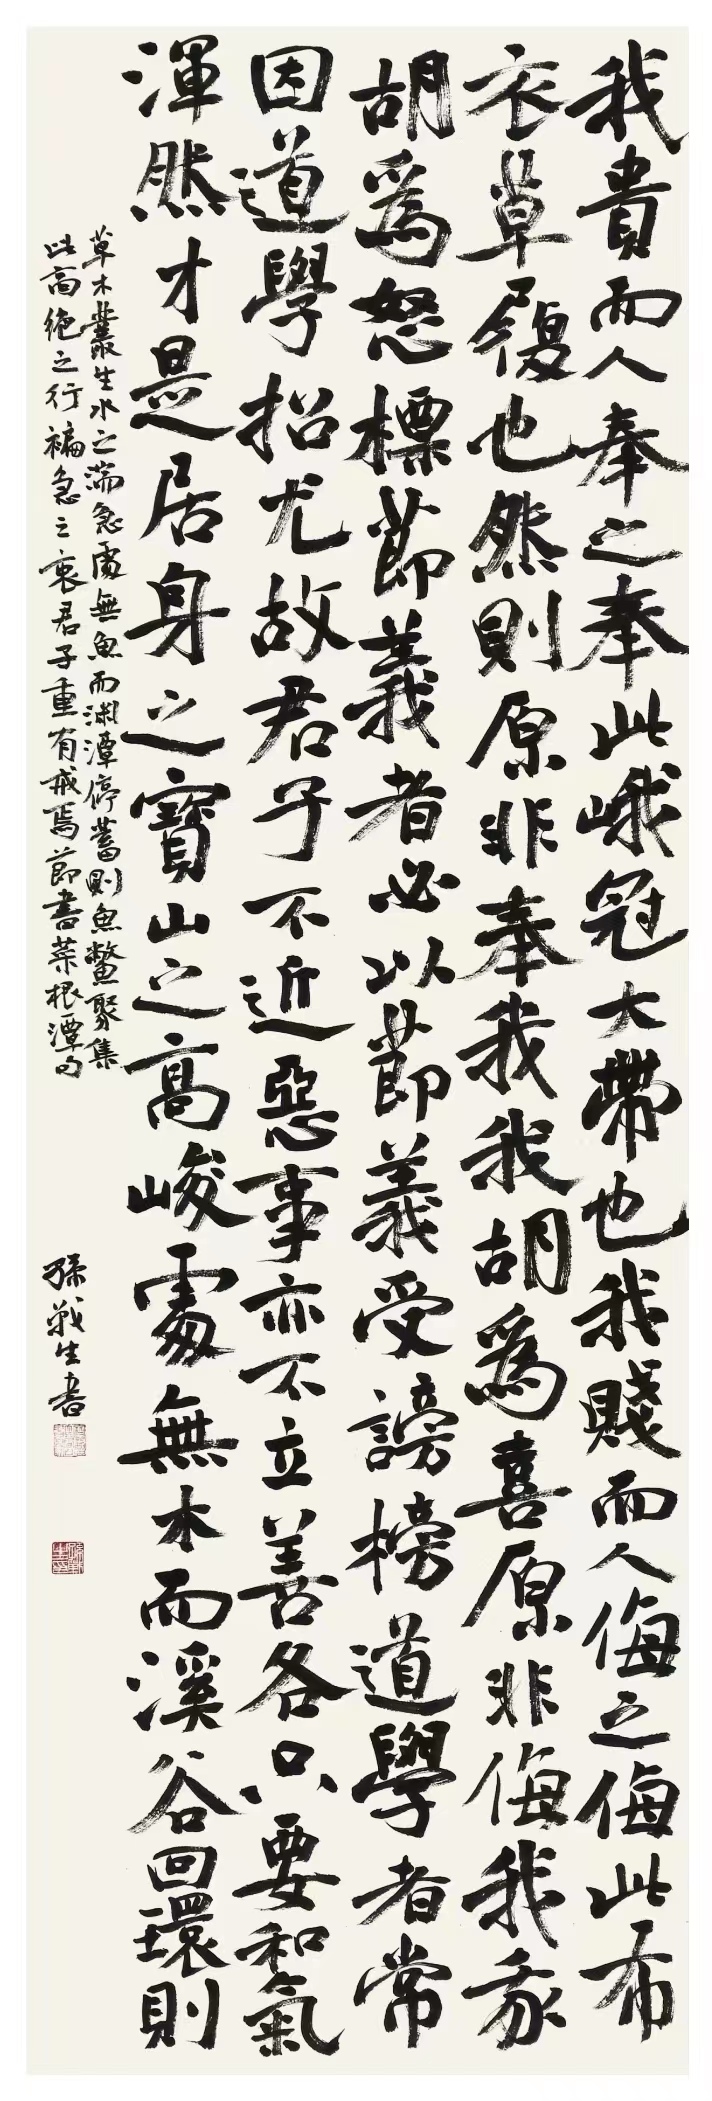 我貴而人奉之奉此峨冠大帶也我賤而人侮之侮此布
衣草履也然則原非奉我我胡爲喜原非侮我我
胡爲怒標節義者必以節義受謗榜道學者常
因道學招尤故君子不近惡事亦不立善名只要和氣
渾然才是居身之寶山之高峻處無木而溪谷回環則
草木叢生水之湍急處無魚而渊潭停蓄則魚鱉聚集
此高絶之行褊急之衷君子重有戒焉節書菜根潭句
孫戰生書